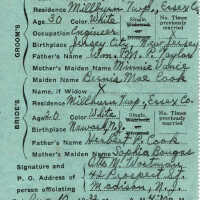 GROOM'S
Residence Millburn Twp., Essex Co.
Age 30 Color White Single, Widower No. Times previously married
Occupation Engineer
Birthplace Jersey City, New Jersey
Father's Name Wm. A. Taylor
Mother's Maiden Name Minnie Vance
Maiden Name Bernice Mae Cook
Name, if Widow X
BRIDE'S
Residence Millburn Twp., Essex Co.
Age 20 Color White Single, No. Times previously married
Birthplace Newark, N.J.
Father's Name Herbert P. Cook
Mother's Maiden Name Sophia
Signature and
P. O. Address of 42 Prospect St.
person officiating Madison, N.J.